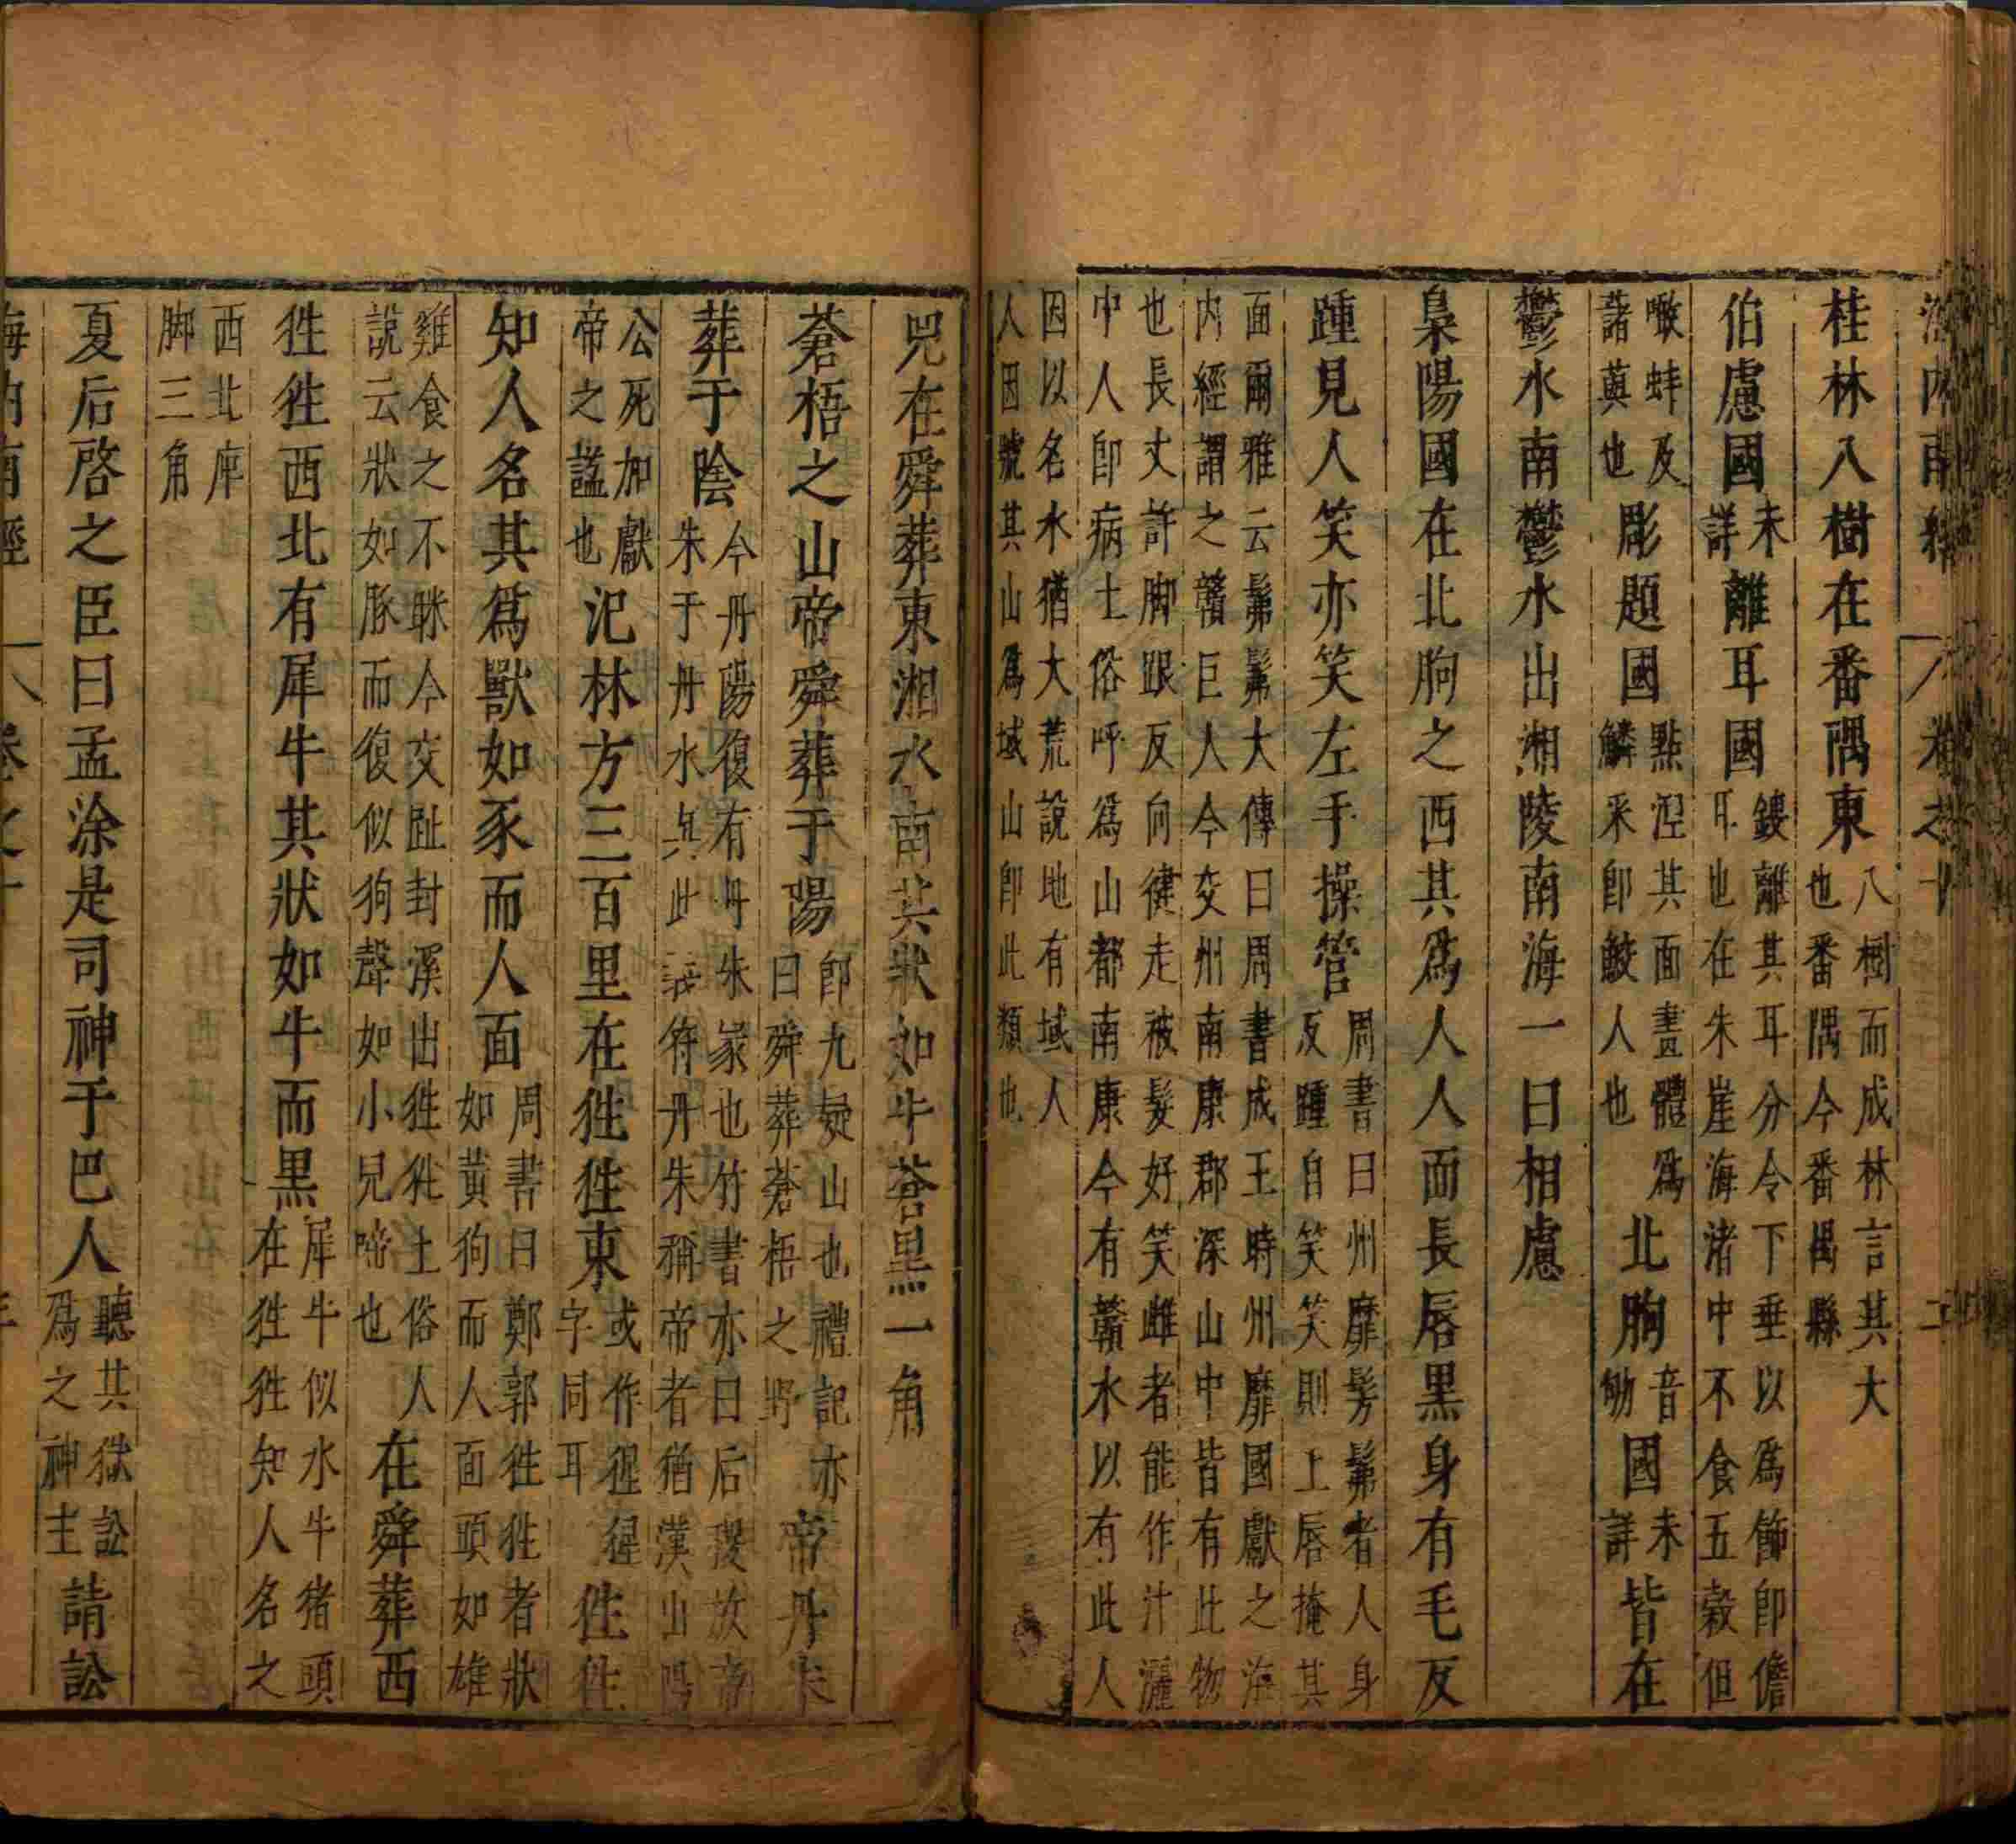 桂林八樹在番隅東八樹而成林言其大也番隅今番禺縣
伯慮國未詳離耳國鎪離其耳分令下垂以為飾即儋耳也在朱崖海渚中不食五穀但
噉蚌及藷藇也彫題國點涅其面畫體為鱗采即鮫人也北朐音劬國未詳皆在
鬱水南鬱水出湘陵南海一曰相慮
梟陽國在北朐之西其為人人面長唇黑身有毛反
踵見人笑亦笑左手操管周書曰州靡髣髴者人身反踵自笑笑則上唇掩其
面爾雅云髴髴大傳曰周書成王時州靡國獻之海內經謂之贛巨人今交州南康郡深山中皆有此物
也長丈許脚跟反向健走被髮好笑雌者能作汁灑中人即病土俗呼為山都南康今有贛水以有此人
因以名水猶大荒說地有蜮人人因號其山為蜮山即此類也
兕在舜葬東湘水南其狀如牛蒼黑一角
蒼梧之山帝舜葬于陽即九疑山也禮記亦曰舜葬蒼梧之野帝丹朱
葬于陰今丹陽復有丹朱冢也竹書亦曰后稷放帝朱于丹水與此義符丹朱稱帝者猶漢山陽
公死加獻帝之諡也氾林方三百里在狌狌東或作猩猩字同耳狌狌
知人名其為獸如豕而人面周書曰鄭郭狌狌者狀如黃狗而人面頭如雄
雞食之不眯今交趾封溪出狌狌土俗人說云狀如豚而復似狗聲如小兒啼也在舜葬西
狌狌西北有犀牛其狀如牛而黑犀牛似水牛豬頭在狌狌知人名之
西北庳脚三角
夏后啓之臣曰孟涂是司神于巴人聽其獄訟為之神主請訟